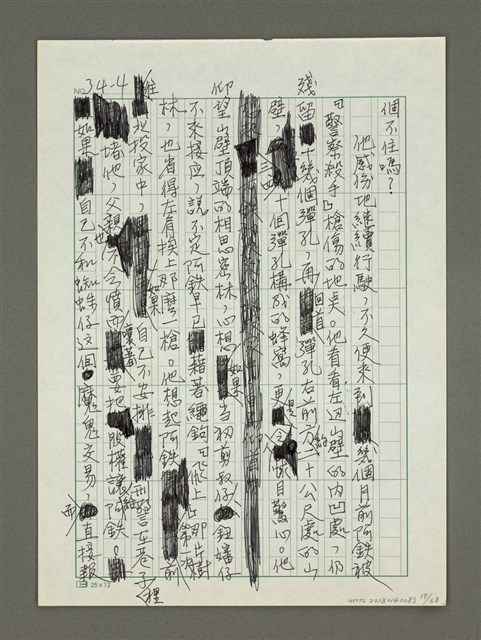 個不住嗎？
他感傷地繼續行駛，不久便來到幾個月前阿鉄被
『警察殺手』槍傷的地吳。他看看左迎山壁的內凹處，仍
殘留十幾個彈孔，再回首彈孔右前方約二十公尺處的山
壁，三四十個彈孔構成的蜂窩，更是令怵目驚心。他
仰望山壁頂端的相思密林，心想如果當初剪釵仔、鈕嬸仔
不來接应，說不定阿鉄早已藉著繩鉤『飛上』那片樹
林，也省得左肩挨上那麼一槍。他想起阿鉄前
往北投家中，如果自己不安排刑警在巷子裡
堵他，父親也不会憤而嚷著要把股權讓給阿鉄。
如果自己不和蜘蛛仔这個魔鬼交易，而直接報
NO. 34-4
25 x 12
NMTL20180140083 17/68